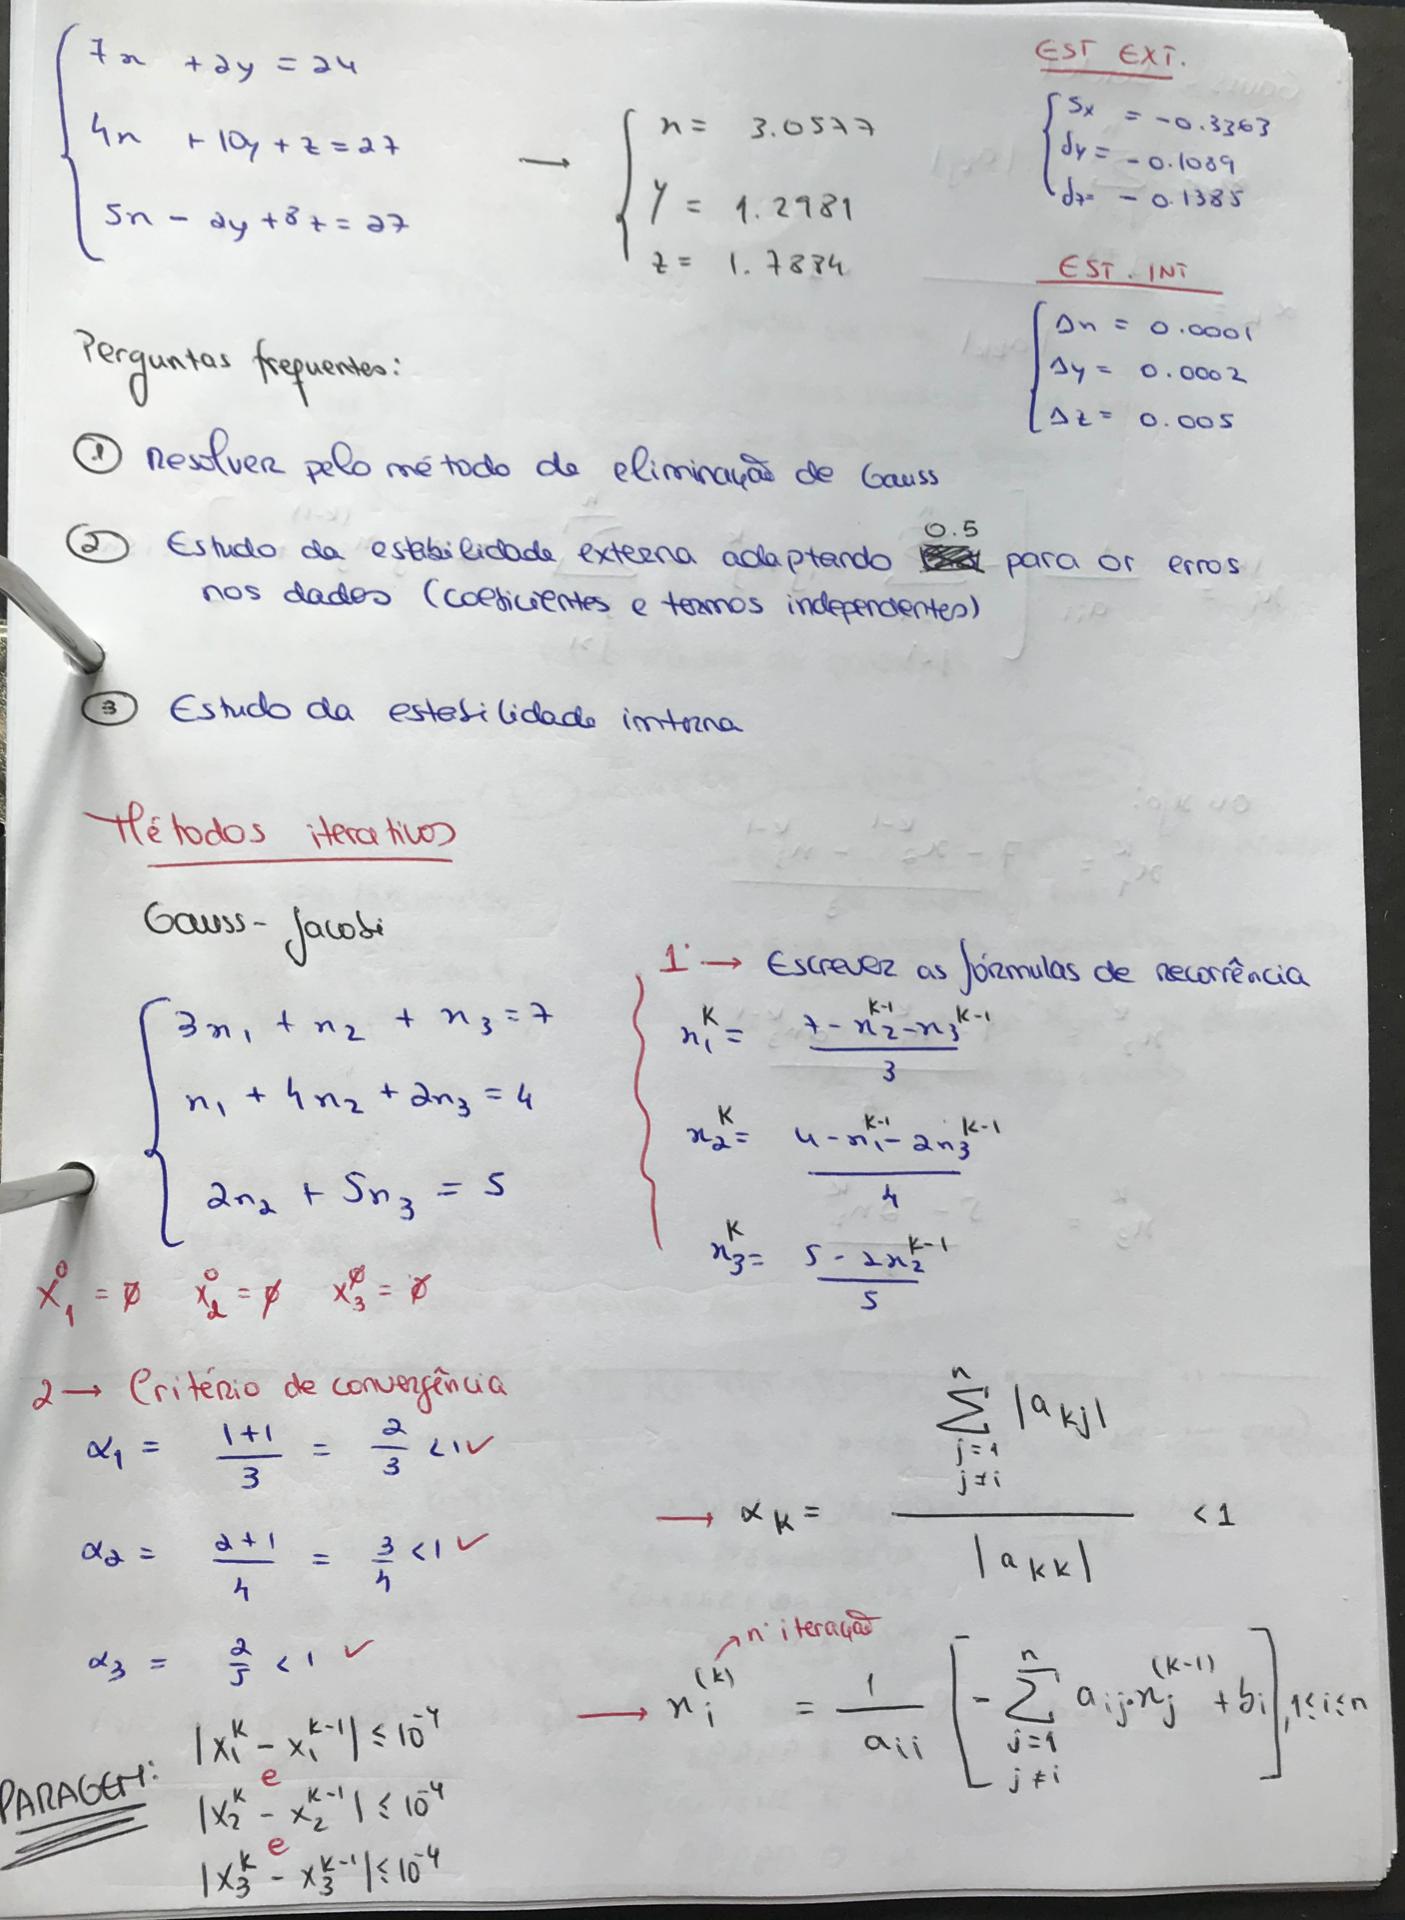 7x + 2y = 24
4x + 10y + z = 27
5x - 2y + 8z = 27
→
x = 3.0577
y = 1.2981
z = 1.7884
EST EXT.
δx = -0.3363
δy = -0.1089
δz = -0.1385
EST. INT
Δx = 0.0001
Δy = 0.0002
Δz = 0.005
Perguntas frequentes:
① Resolver pelo método de eliminação de Gauss
② Estudo da estabilidade externa adaptando 0.5 para os erros
nos dados (coeficientes e termos independentes)
③ Estudo da estabilidade interna
Métodos iterativos
Gauss-Jacobi
3x₁ + x₂ + x₃ = 7
x₁ + 4x₂ + 2x₃ = 4
2x₂ + 5x₃ = 5
x₁⁰ = 0 x₂⁰ = 0 x₃⁰ = 0
1° → Escrever as fórmulas de recorrência
x₁^K = (7 - x₂^(K-1) - x₃^(K-1)) / 3
x₂^K = (4 - x₁^(K-1) - 2x₃^(K-1)) / 4
x₃^K = (5 - 2x₂^(K-1)) / 5
2 → Critério de convergência
α₁ = (1+1)/3 = 2/3 < 1 ✓
α₂ = (2+1)/4 = 3/4 < 1 ✓
α₃ = 2/5 < 1 ✓
→ αK = (Σ_{j=1, j≠i}^{n} |a kj|) / |a KK| < 1
n° iteração
→ xᵢ^(k) = 1/aᵢᵢ [ - Σ_{j=1, j≠i}^{n} aᵢⱼ·xⱼ^(K-1) + bᵢ ], 1≤i≤n
PARAGEM:
|x₁^K - x₁^(K-1)| ≤ 10⁻⁴
e
|x₂^K - x₂^(K-1)| ≤ 10⁻⁴
e
|x₃^K - x₃^(K-1)| ≤ 10⁻⁴